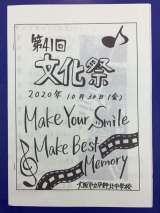 第41回
文化祭
2020年 10月30日(金)
Make Your Smile
Make Best
Memory